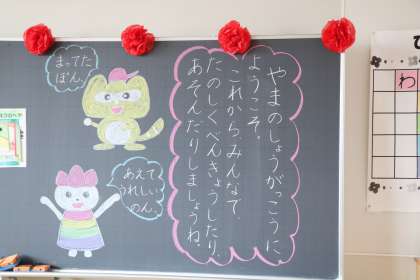 やまのしょうがっこうに、
ようこそ。
これから、みんなで
たのしくべんきょうしたり、
あそんだりしましょうね。
まってた
ぽん。
あえて
うれしい
のん。
わ